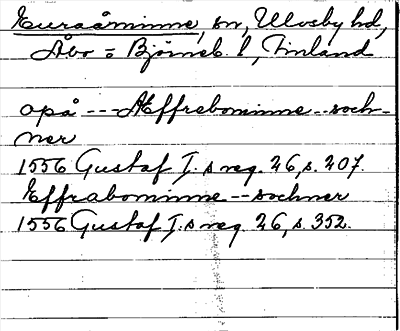 Euraåminne, sn, Ulvsby hd,
Åbo = Björneb. l, Finland
opå --- Æffrebominne -- soch-
ner
1556 Gustaf I.s reg. 26, s. 207.
Effrabominne -- sochner
1556 Gustaf I.s reg. 26, s. 352.